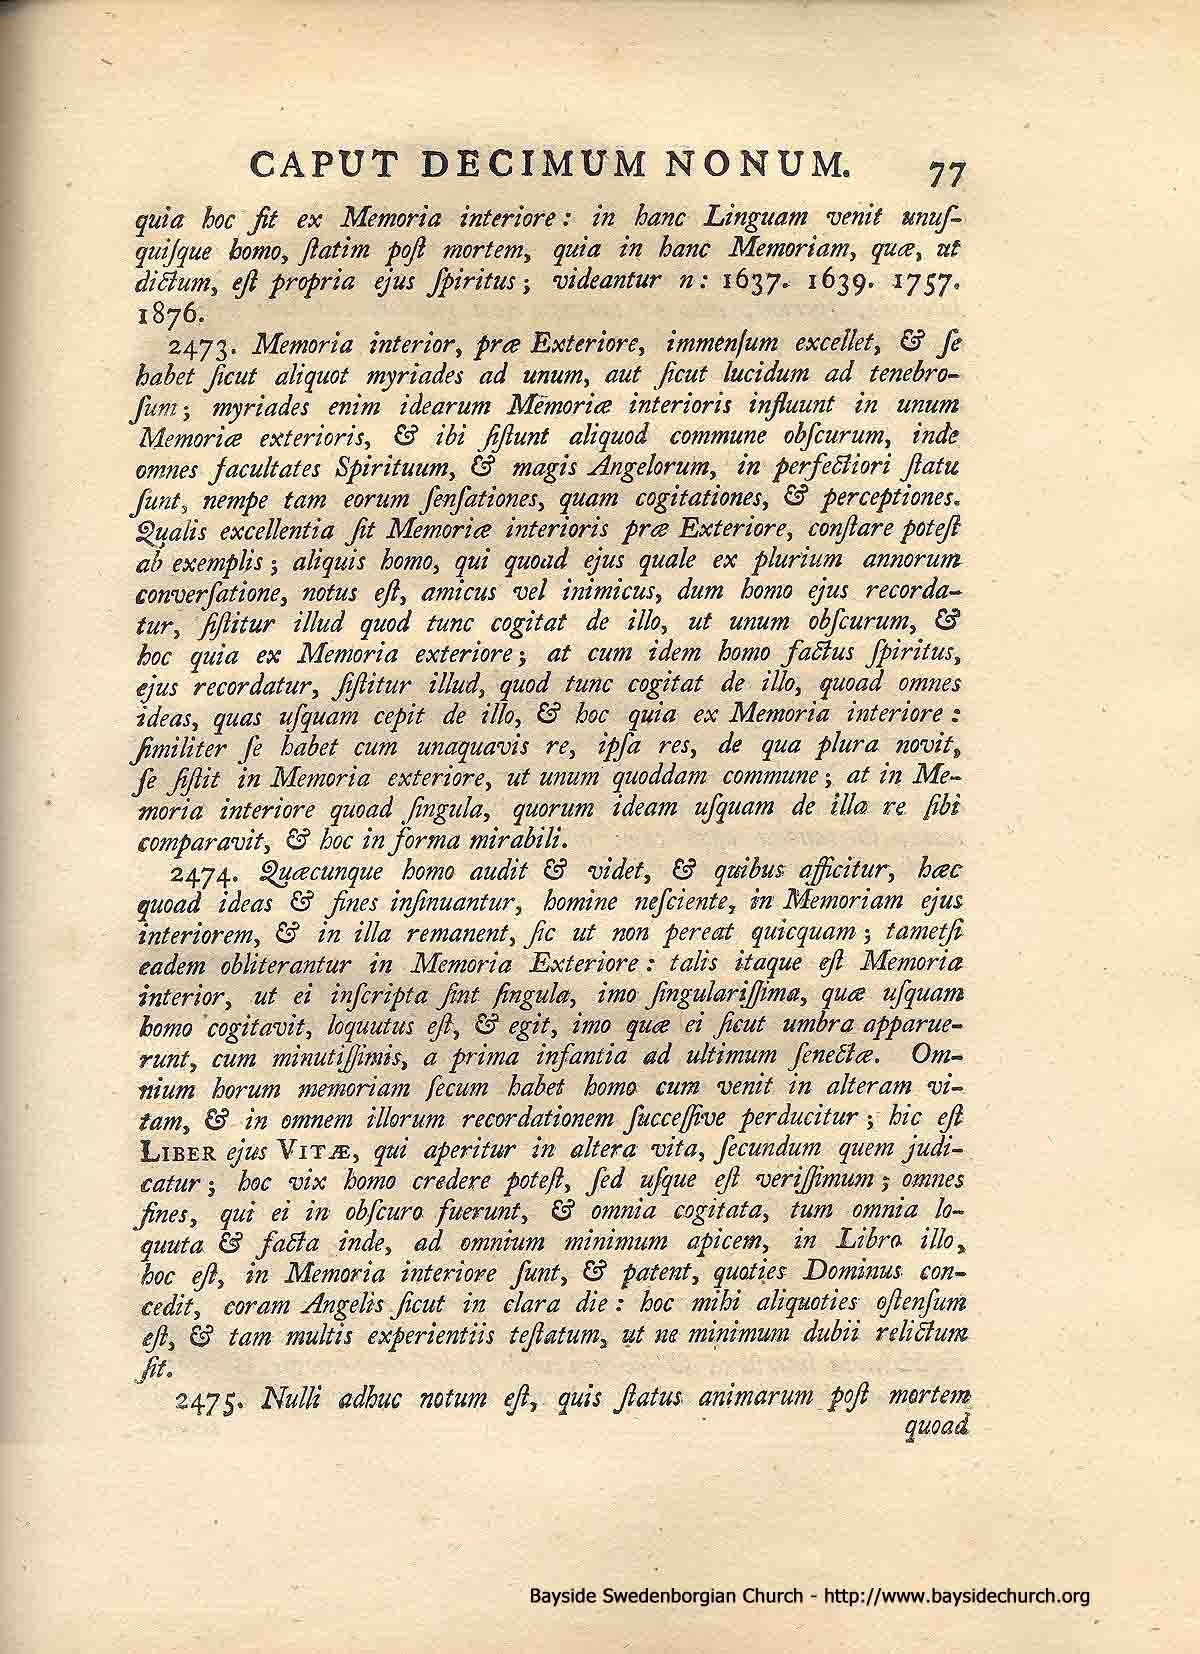 CAPUT DECIMUM NONUM. 77
quia hoc fit ex Memoria interiore: in hanc Linguam venit unuſ-
quiſque homo, ſtatim poſt mortem, quia in hanc Memoriam, quæ, ut
dictum, eſt propria ejus ſpiritus; videantur n: 1637. 1639. 1757.
1876.
2473. Memoria interior, præ Exteriore, immenſum excellet, & ſe
habet ſicut aliquot myriades ad unum, aut ſicut lucidum ad tenebro-
ſum; myriades enim idearum Memoriæ interioris influunt in unum
Memoriæ exterioris, & ibi ſiſtunt aliquod commune obſcurum, inde
omnes facultates Spirituum, & magis Angelorum, in perfectiori ſtatu
ſunt, nempe tam eorum ſenſationes, quam cogitationes, & perceptiones.
Qualis excellentia ſit Memoriæ interioris præ Exteriore, conſtare poteſt
ab exemplis; aliquis homo, qui quoad ejus quale ex plurium annorum
converſatione, notus eſt, amicus vel inimicus, dum homo ejus recorda-
tur, ſiſtitur illud quod tunc cogitat de illo, ut unum obſcurum, &
hoc quia ex Memoria exteriore; at cum idem homo factus ſpiritus,
ejus recordatur, ſiſtitur illud, quod tunc cogitat de illo, quoad omnes
ideas, quas uſquam cepit de illo, & hoc quia ex Memoria interiore:
ſimiliter ſe habet cum unaquavis re, ipſa res, de qua plura novit,
ſe ſiſtit in Memoria exteriore, ut unum quoddam commune; at in Me-
moria interiore quoad ſingula, quorum ideam uſquam de illa re ſibi
comparavit, & hoc in forma mirabili.
2474. Quæcunque homo audit & videt, & quibus afficitur, hæc
quoad ideas & fines inſinuantur, homine neſciente, in Memoriam ejus
interiorem, & in illa remanent, ſic ut non pereat quicquam; tametſi
eadem obliterantur in Memoria Exteriore: talis itaque eſt Memoria
interior, ut ei inſcripta ſint ſingula, imo ſingulariſſima, quæ uſquam
homo cogitavit, loquutus eſt, & egit, imo quæ ei ſicut umbra apparue-
runt, cum minutiſſimis, a prima infantia ad ultimum ſenectæ. Om-
nium horum memoriam ſecum habet homo cum venit in alteram vi-
tam, & in omnem illorum recordationem ſucceſſive perducitur; hic eſt
LIBER ejus VITÆ, qui aperitur in altera vita, ſecundum quem judi-
catur; hoc vix homo credere poteſt, ſed uſque eſt veriſſimum; omnes
fines, qui ei in obſcuro fuerunt, & omnia cogitata, tum omnia lo-
quuta & facta inde, ad omnium minimum apicem, in Libro illo,
hoc eſt, in Memoria interiore ſunt, & patent, quoties Dominus con-
cedit, coram Angelis ſicut in clara die: hoc mihi aliquoties oſtenſum
eſt, & tam multis experientiis teſtatum, ut ne minimum dubii relictum
ſit.
2475. Nulli adhuc notum eſt, quis ſtatus animarum poſt mortem
quoad
Bayside Swedenborgian Church - http://www.baysidechurch.org